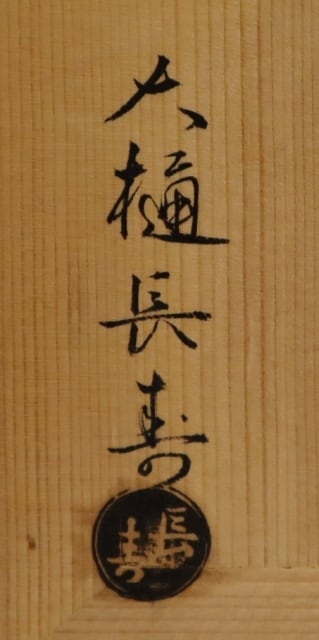 大樋長寿
長寿